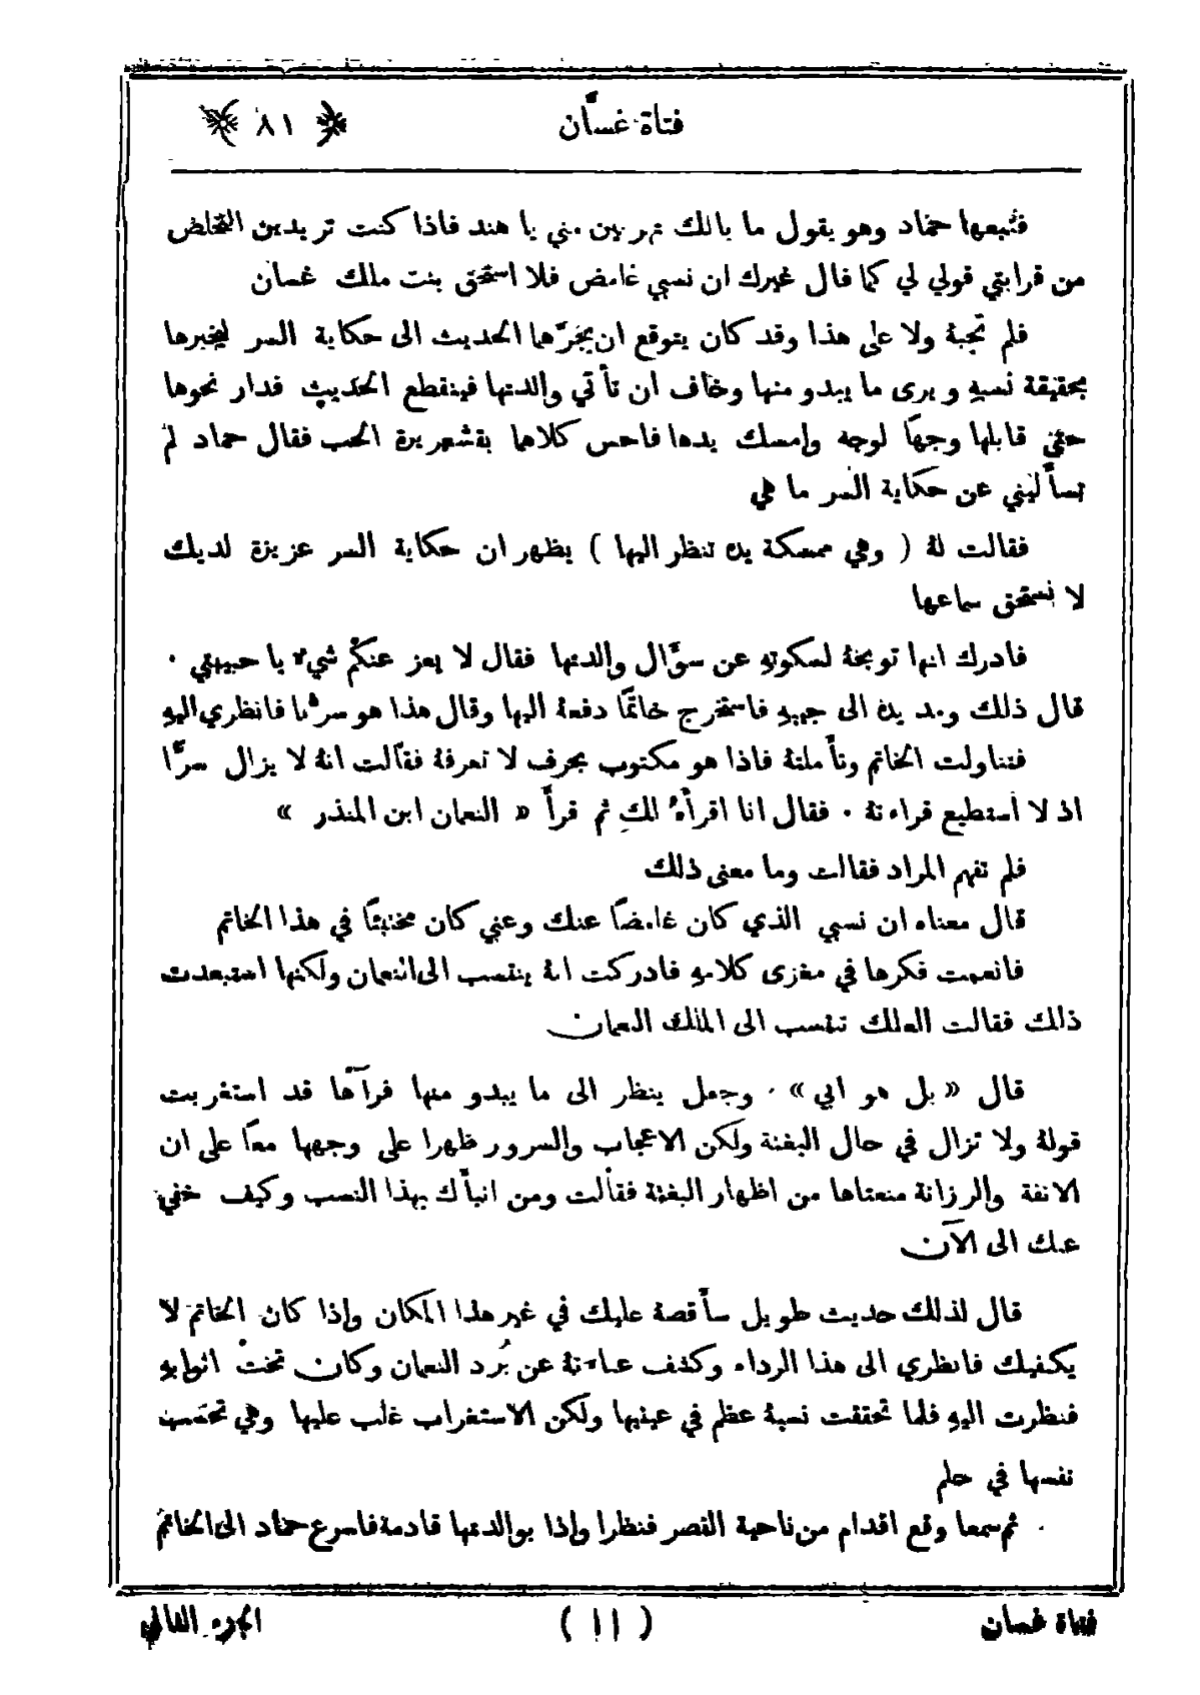 فتاة غسَّان ﴿ ٨١ ﴾
فتبعها حماد وهو يقول ما بالك تهربين مني يا هند فاذا كنت تريدين التخلص
من قرابتي قولي لي كما قال غيرك ان نسبي غامض فلا استحق بنت ملك غسان
فلم تجبهُ ولا على هذا وقد كان يتوقع ان يجرَّها الحديث الى حكاية السر ليخبرها
بحقيقة نسبهِ ويرى ما يبدو منها وخاف ان تأتي والدتها فينقطع الحديث فدار نحوها
حتى قابلها وجهًا لوجه وامسك يدها فاحس كلاهما بقشعريرة الحب فقال حماد لم
تسأليني عن حكاية السر ما هي
فقالت لهُ ( وهي ممسكة يده تنظر اليها ) يظهر ان حكاية السر عزيزة لديك
لا نستحق سماعها
فادرك انها توبخهُ لسكوتهِ عن سؤَّال والدتها فقال لا يعز عنكُم شيء يا حبيبتي ٠
قال ذلك ومد يده الى جيبهِ فاستخرج خاتمًا دفعهُ اليها وقال هذا هو سرُّنا فانظري اليهِ
فتناولت الخاتم وتأملتهُ فاذا هو مكتوب بحرف لا تعرفهُ فقالت انهُ لا يزال سرًّا
اذ لا أستطيع قراءتهُ ٠ فقال انا اقرأهُ لكِ ثم قرأ « النعمان ابن المنذر »
فلم تفهم المراد فقالت وما معنى ذلك
قال معناه ان نسبي الذي كان غامضًا عنك وعني كان مختبئًا في هذا الخاتم
فانعمت فكرها في مغزى كلامهِ فادركت انهُ ينتسب الى النعمان ولكنها استبعدت
ذلك فقالت العلك تنتسب الى الملك النعمان
قال « بل هو ابي » ٠ وجعل ينظر الى ما يبدو منها فرآها قد استغربت
قولهُ ولا تزال في حال البغتة ولكن الاعجاب والسرور ظهرا على وجهها معًا على ان
الانفة والرزانة منعتاها من اظهار البغتة فقالت ومن انبأك بهذا النسب وكيف خفي
عنك الى الآن
قال لذلك حديث طويل سأقصهُ عليك في غير هذا المكان واذا كان الخاتم لا
يكفيك فانظري الى هذا الرداء وكشف عباءتهُ عن بُرد النعمان وكان تحت اثوابهِ
فنظرت اليهِ فلما تحققت نسبهُ عظم في عينيها ولكن الاستغراب غلب عليها وهي تحسب
نفسها في حلم
ثم سمعا وقع اقدام من ناحية القصر فنظرا واذا بوالدتها قادمة فاسرع حماد الى الخاتم
فتاة غسان ( ١١ ) الجزء الثاني